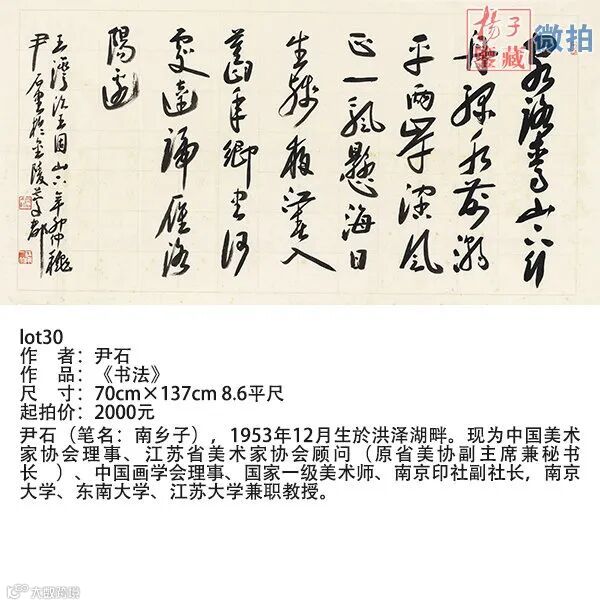 揚子
鑒藏
微拍
客路青山下行
舟綠水前潮
平兩岸深風
正一帆懸海日
生殘夜江春入
舊年鄉書何
處達歸雁洛
陽邊
王灣次北固山下辛卯仲穐
尹石書於金陵
lot30
作 者：尹石
作 品：《书法》
尺 寸：70cm×137cm 8.6平尺
起拍价：2000元
尹石（笔名：南乡子），1953年12月生於洪泽湖畔。现为中国美术
家协会理事、江苏省美术家协会顾问（原省美协副主席兼秘书
长 ）、中国画学会理事、国家一级美术师、南京印社副社长，南京
大学、东南大学、江苏大学兼职教授。
大数跨境